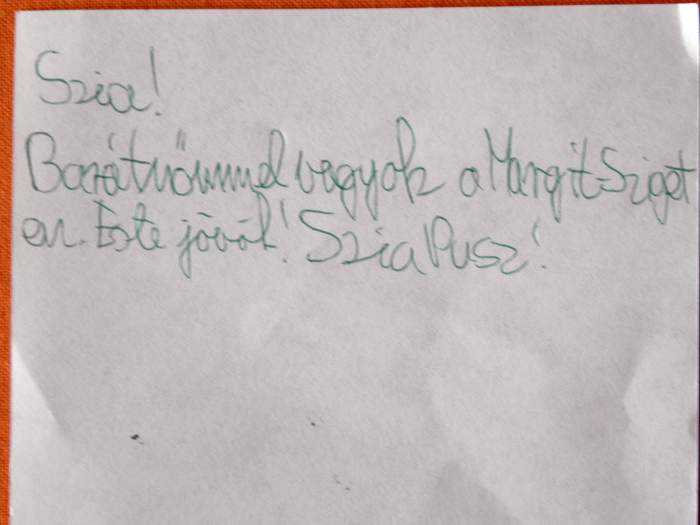 Szia!
Barátnőmmel vagyok a Margit-Sziget
en. Este jövök! Szia Pusz!